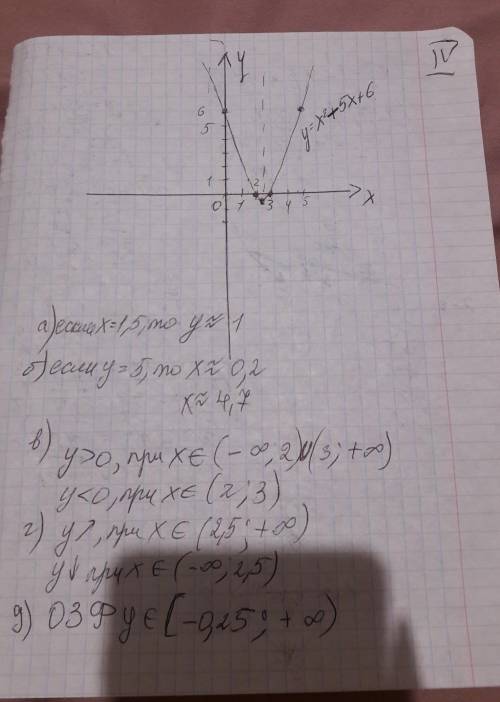 IV
y
y=x²-5x+6
6
5
1
2
0 1 3 4 5 x
а) если x=1,5, то y≈1
б) если y=5, то x≈0,2
x≈4,7
в) y>0, при x∈(-∞,2)∪(3;+∞)
y<0, при x∈(2;3)
г) y↗, при x∈(2,5;+∞)
y↓ при x∈(-∞;2,5)
д) ОЗФ y∈[-0,25;+∞)